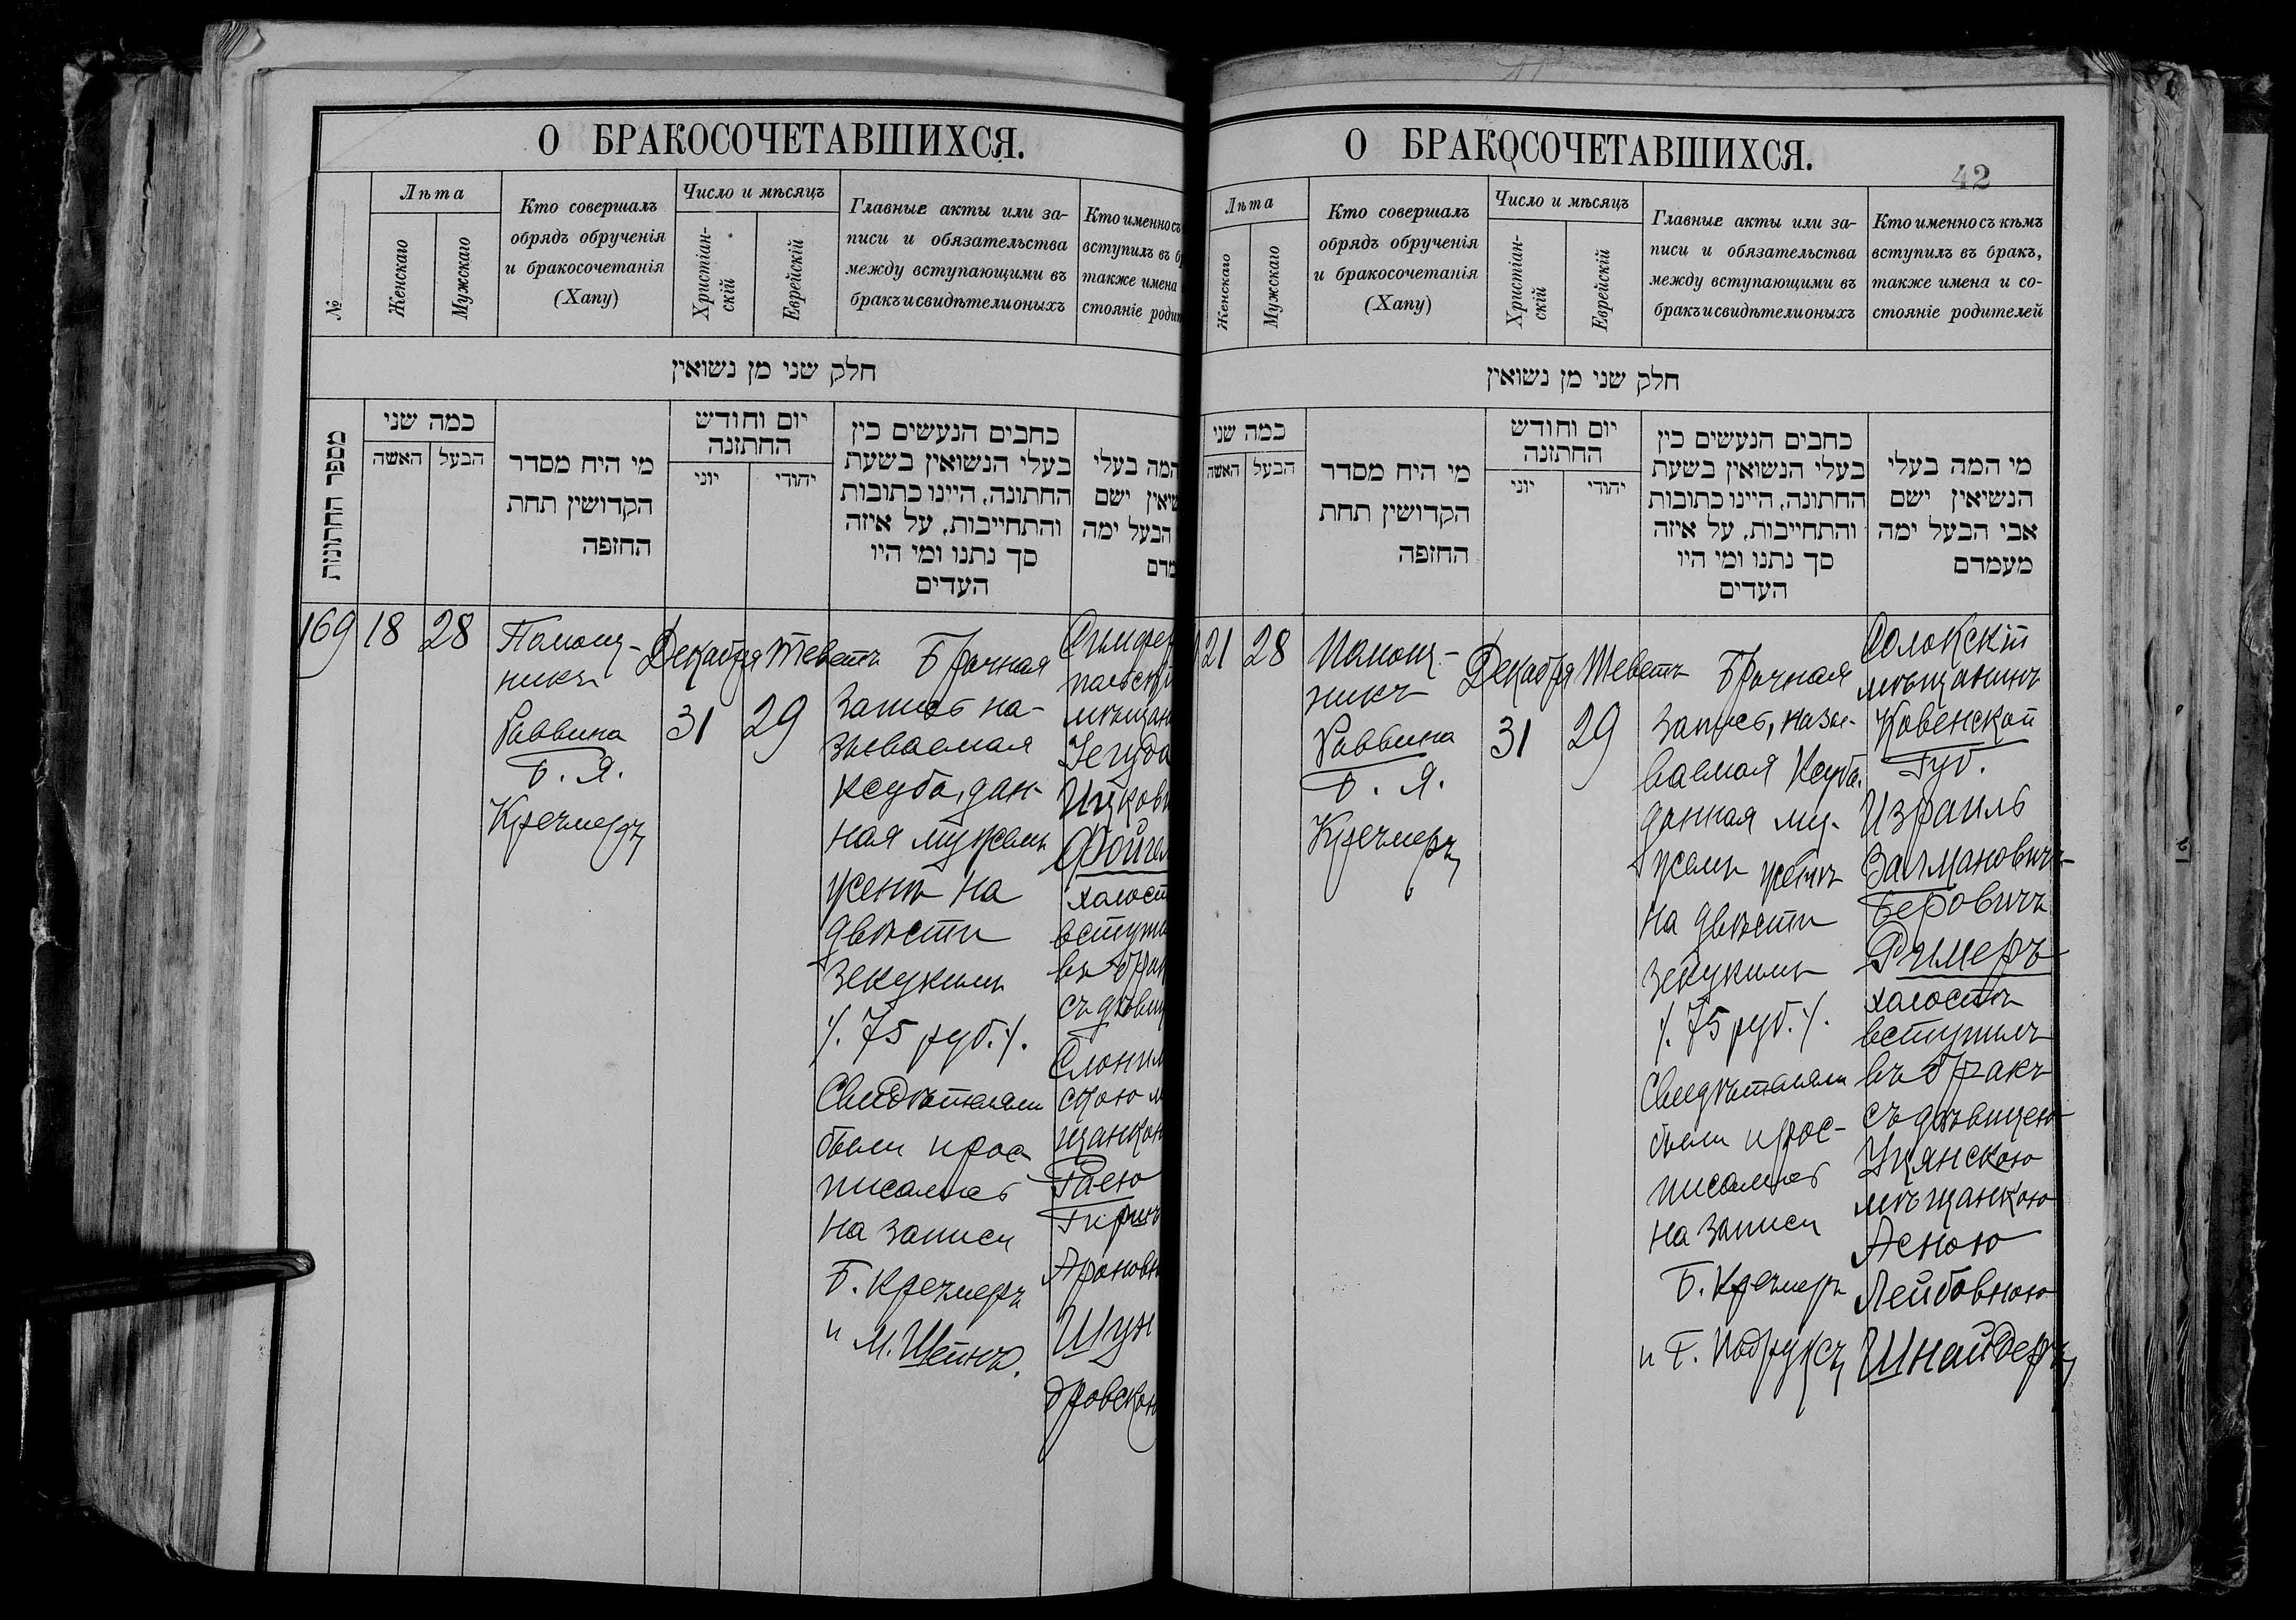 О БРАКОСОЧЕТАВШИХСЯ.
№
Лѣта
Женскаго
Мужскаго
Кто совершалъ
обрядъ обрученія
и бракосочетанія
(Хапу)
Число и мѣсяцъ
Христіан-
скій
Еврейскій
Главные акты или за-
писи и обязательства
между вступающими въ
бракъ и свидѣтели оныхъ
Кто именно съ
вступилъ въ б
также имена
стояніе роди
חלק שני מן נשואין
מספר החתונות
כמה שני
האשה
הבעל
מי היח מסדר
הקדושין תחת
החזפה
יום וחודש
החתזנה
יוני
יהודי
כחבים הנעשים כין
בעלי הנשואין בשעת
החתונה, היינו כתובות
והתחייבות, על איזה
סך נתנו ומי היו
העדים
המה בעלי
שיאין ישם
הבעל ימה
מדם
169
18
28
Помощ-
никъ
Раввина
Б. Я.
Кречмеръ
Декабря
31
Теветъ
29
Брачная
Запись на-
зываемая
Ксуба, дан-
ная мужемъ
женѣ на
двѣсти
Зекукимъ
/. 75 руб. /.
Свидѣтелями
были и рос-
писались
на записи
Б. Кречмеръ
и М. Штейнъ.
Симфер
польскі
мѣщан
Іегуда
Ицкови
Фойгел
холост
вступи
въ брак
съ дѣвиц
Слоним
скою м
щанкою
Расею
Гирш
Ароновн
Шун
дровскою
О БРАКОСОЧЕТАВШИХСЯ.
42
Лѣта
Женскаго
Мужскаго
Кто совершалъ
обрядъ обрученія
и бракосочетанія
(Хапу)
Число и мѣсяцъ
Христіан-
скій
Еврейскій
Главные акты или за-
писи и обязательства
между вступающими въ
бракъ и свидѣтели оныхъ
Кто именно съ кѣмъ
вступилъ въ бракъ,
также имена и со-
стояніе родителей
חלק שני מן נשואין
כמה שני
האשה
הבעל
מי היח מסדר
הקדושין תחת
החזפה
יום וחודש
החתזנה
יוני
יהודי
כחבים הנעשים כין
בעלי הנשואין בשעת
החתונה, היינו כתובות
והתחייבות, על איזה
סך נתנו ומי היו
העדים
מי המה בעלי
הנשיאין ישם
אבי הבעל ימה
מעמדם
21
28
Помощ-
никъ
Раввина
Б. Я.
Кречмеръ
Декабря
31
Теветъ
29
Брачная
Запись, назы-
ваемая Ксуба,
данная му-
жемъ женѣ
на двѣсти
Зекукимъ
/. 75 руб. /.
Свидѣтелями
были и рос-
писались
на записи
Б. Кречмеръ
и Г. Подруксъ
Солокскій
мѣщанинъ
Ковенской
Губ.
Израиль
Залмановичъ-
Беровичъ
Римеръ
холостъ
вступилъ
въ бракъ
съ дѣвицею
Уцянскою
мѣщанкою
Асною
Лейбовною
Шнайдеръ